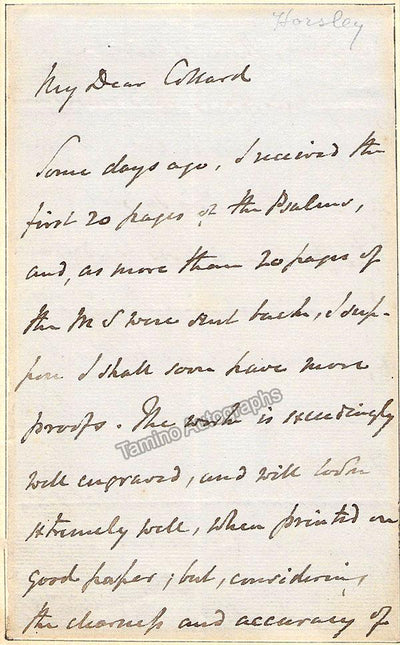 Horsley
My Dear Collard
Some days ago, I received the
first 20 pages of the Psalms,
and, as more than 20 pages of
the MS were sent back, I sup-
pose I shall soon have more
proofs. The work is exceedingly
well engraved, and will look
extremely well, when printed on
good paper; but, considering
the clearness and accuracy of
Tamino Autographs